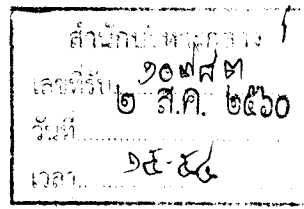 สำนักบริหารกลาง
เลขที่รับ ๑๐๗๘๓
วันที่ ๒ ส.ค. ๒๕๖๐
เวลา ๑๕.๕๔